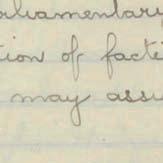 rliamentary
tion of facti
may assu